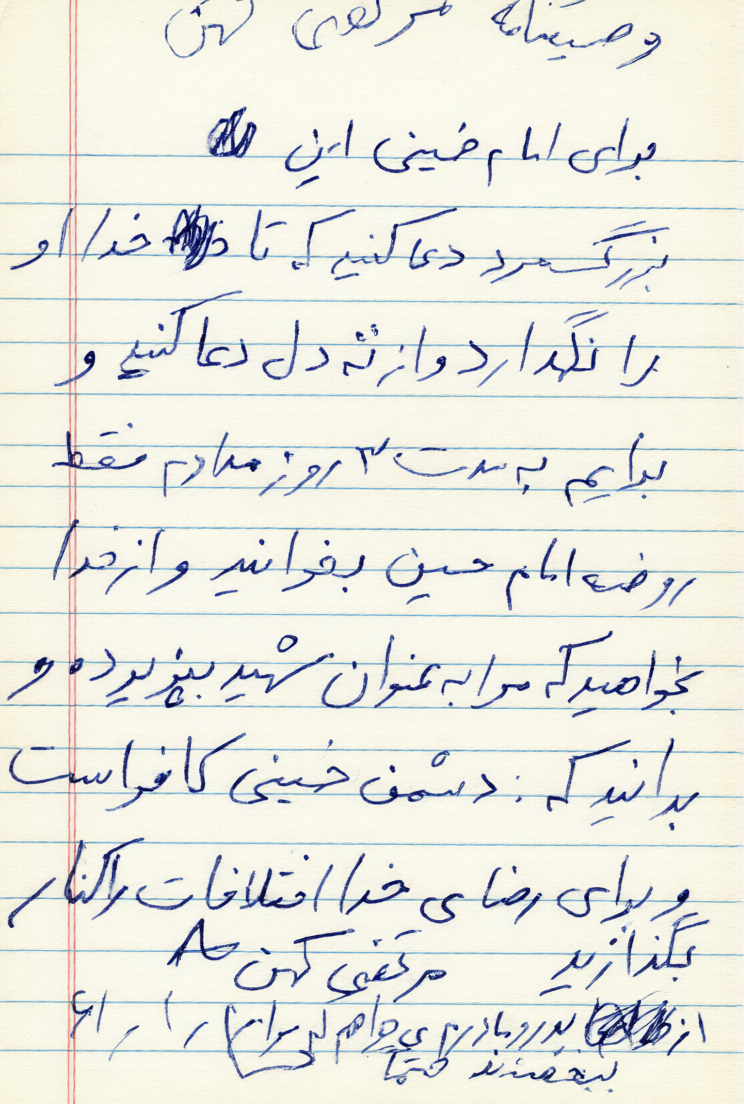 وصیتنامه مرتضی کهن
برای امام خمینی این
بزرگمرد دعا کنید که تا خدا او
را نگهدارد و از ته دل دعا کنید و
برایم به مدت ۳ روز مادرم فقط
روضه امام حسین بخوانید و از خدا
بخواهید که مرا به عنوان شهید بپذیرد و
بدانید که : دشمن خمینی کافر است
و برای رضای خدا اختلافات را کنار
بگذارید مرتضی کهن
از پدر و مادرم می‌خواهم که مرا
ببخشند حتماً